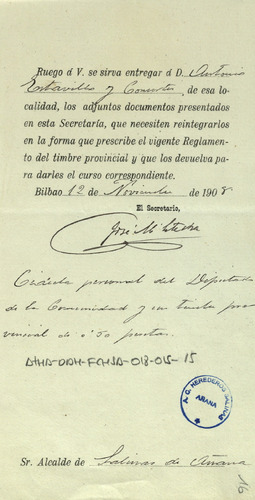 Ruego á V. se sirva entregar á D. Antonio
Estavillo y Consortes, de esa lo-
calidad, los adjuntos documentos presentados
en esta Secretaría, que necesiten reintegrarlos
en la forma que prescribe el vigente Reglamen-
to del timbre provincial y que los devuelva pa-
ra darles el curso correspondiente.
Bilbao 12 de Noviembre de 1908
El Secretario,
José M.
Cédula personal del Diputado
de la Comunidad y un timbre pro-
vincial de 0'50 pesetas.
ATHA-DAH-FGHSA-018-015-15
A. G. HEREDEROS SALINAS
AÑANA
Sr. Alcalde de Salinas de Añana
16